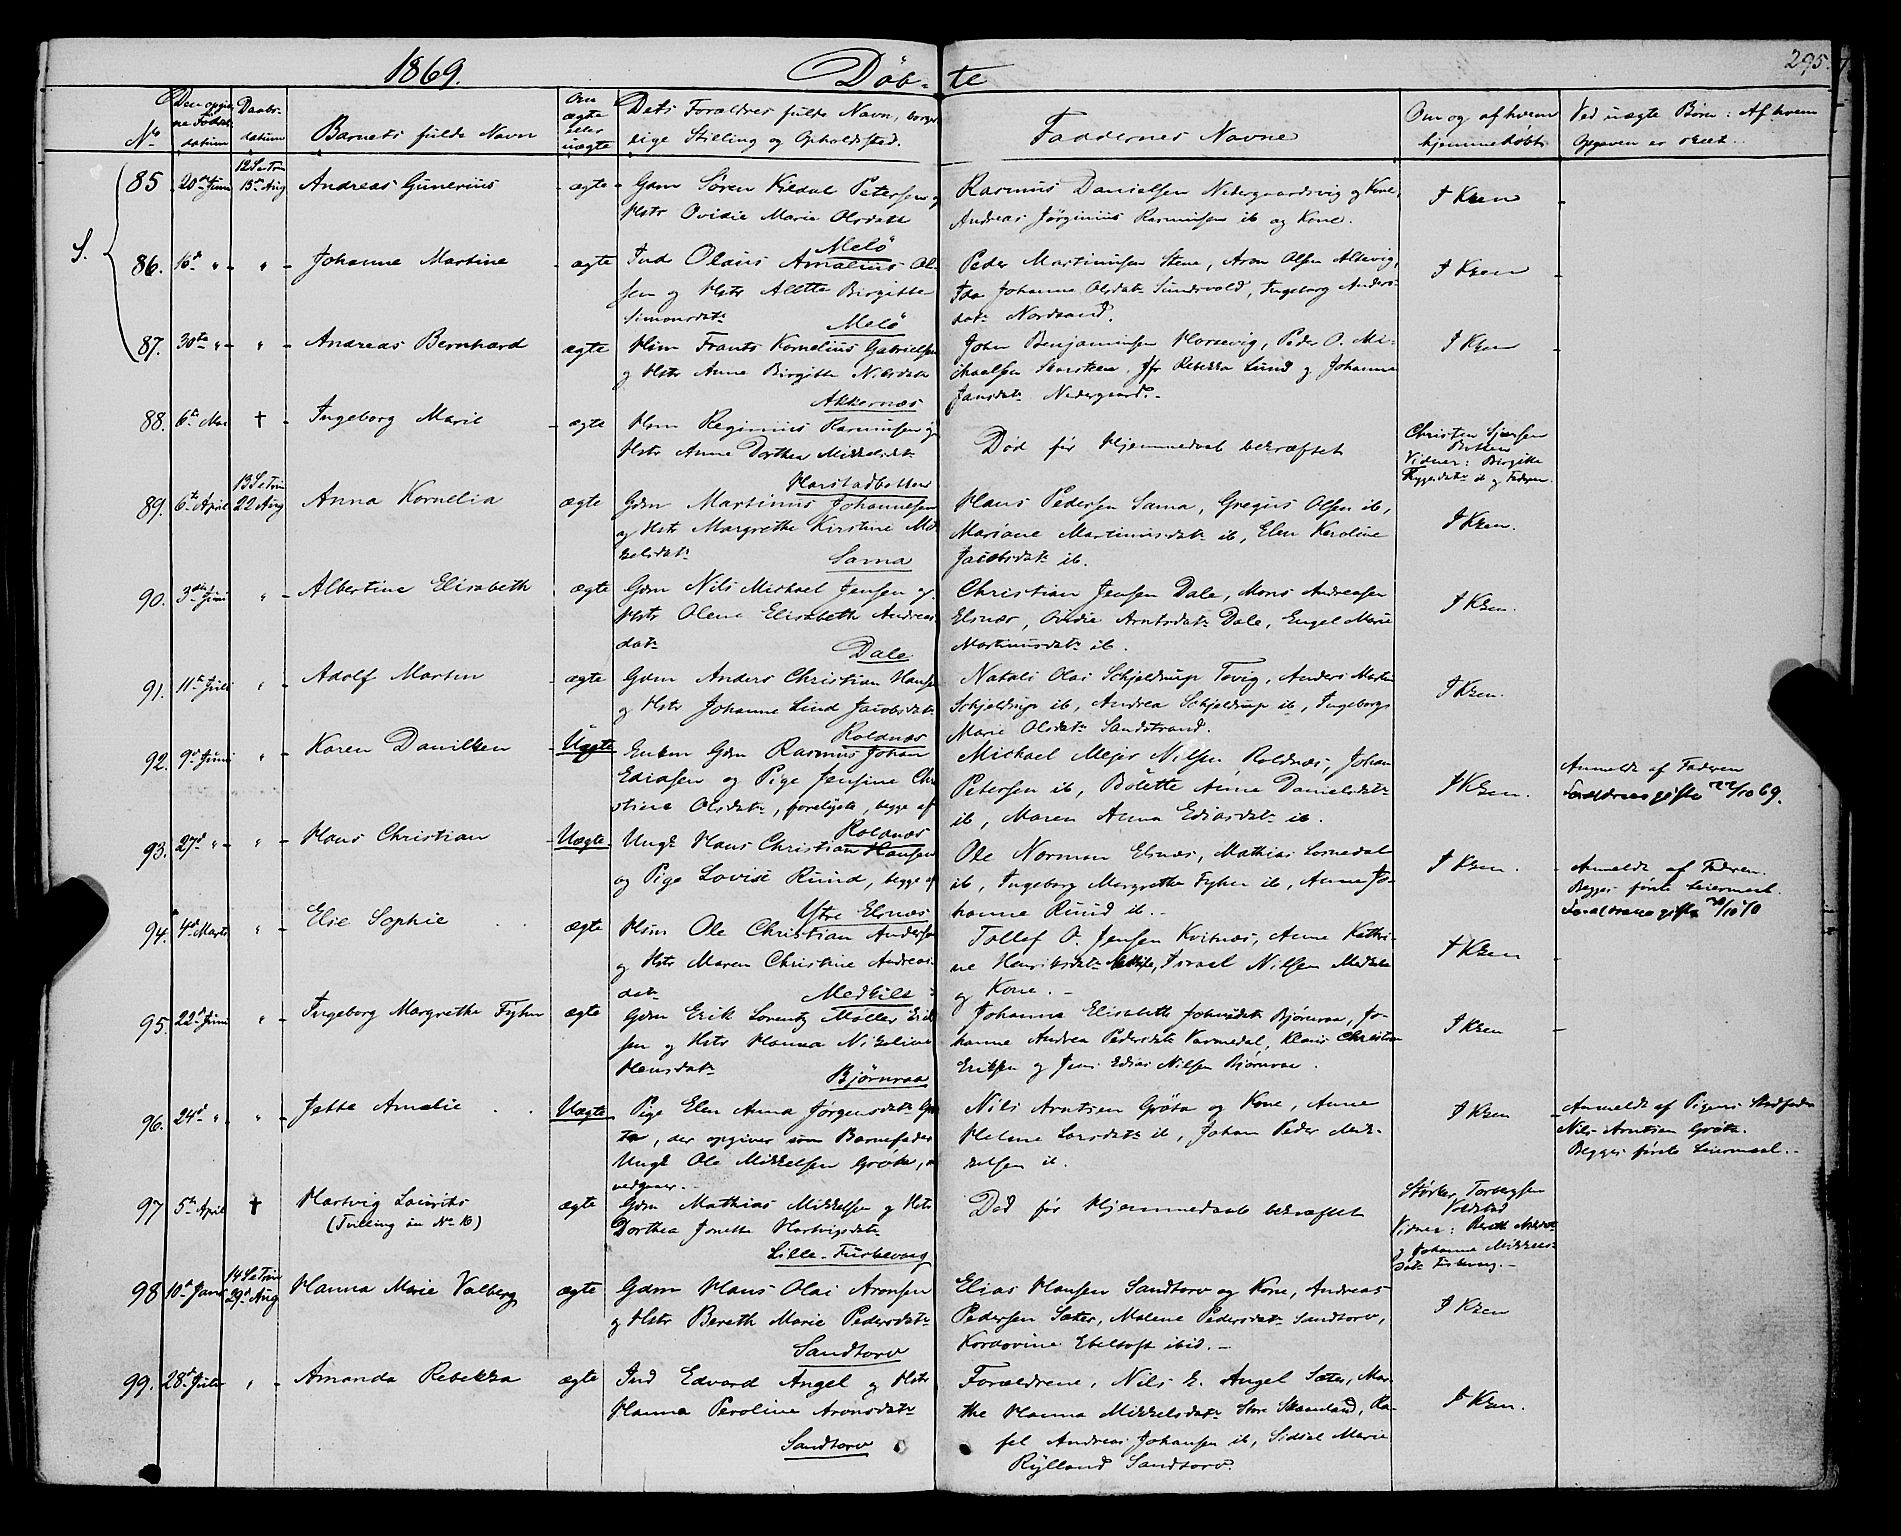 1869.
Døb-te
295.
No
Den opgivne Fødselsdatum
Daabsdatum
Barnets fulde Navn
Om ægte eller uægte
Dets Forældres fulde Navn, borgerlige Stilling og Opholdssted.
Faddernes Navne
Om og af hvem hjemmedøbt
Ved uægte Børn: Af hvem Opgaven er skeet.
S.
85 20de Juni 12 S e Trin 15de Aug Andreas Gunerius ægte Gdm Søren Kildal Petersen og
Hstr Ovidie Marie Olsdatt
Melö
Rasmus Danielsen Nedergaardsvig og Kone,
Andreas Jørginius Rasmussen ib og Kone.
I Krken
86. 16d " " Johanne Martine ægte Ind Olaus Amalius Ol-
sen og Hstr Alette Birgitte
Simonsdatr Melö
Peder Martinussen Stene, Aron Olsen Altevig,
Ida Johanna Olsdatr Sundsvold, Ingeborg Anders-
datr Nordsand.
I Krken
87. 30te " " Andreas Bernhard ægte Hsm Frants Kornelius Gabrielsen
og Hstr Anne Birgitte Nilsdatr
Akkernæs
John Benjaminsen Horsevig, Peder O. Mi-
chaelsen, Jfr Rebekka Lund og Johanna
Jansdatr Nedergaard.
I Krken
88. 6te Mai † Ingeborg Marie ægte Hsm Reginius Rasmussen og
Hstr Anne Dorthea Mikkelsdatr
Harstadbotten
Død før Hjemmedaab bekræftet
Christen Sjursen
Botten
Vidner: Birgitte
ib og Faderen.
89. 6te April 13 S e Trin 22 Aug Anna Kornelia ægte Gdm Martinus Johannesen
og Hstr Margrethe Kirstine Mik-
kelsdatr Sama
Hans Pedersen Sama, Gregus Olsen ib,
Mariane Martinusdatr ib, Elen Karoline
Jacobsdatr ib.
I Krken.
90. 3die Juni " Albertine Elisabeth ægte Gdm Nils Michael Jensen og
Hstr Olena Elisabeth Andreas-
datr Dale
Christian Jensen Dale, Mons Andreasen
Elsnæs, Ovidie Arntsdatr Dale, Engel Marie
Martinusdatr ib.
I Krken.
91. 11te Juli " Adolf Martin ægte Gdm Anders Christian Hansen
og Hstr Johanne Lind Jacobsdatr
Roldnæs
Natali Olai Schjeldrup Tovig, Anders Martin
Schjeldrup ib, Andrea Schjeldrup ib, Ingeborg
Marie Olsdatr Sandstrand.
I Krken.
92. 9d Juni " Karen Danilken Uægte Enkm Gdm Rasmus Johan
Ediasen og Pige Jensine Chri-
stine Olsdatr, forelskte, begge af
Roldnæs
Michael Mejer Nilsen Roldnæs, Johan
Petersen ib, Bolette Anne Danielsdatr
ib, Maren Anna Ediasdatr ib.
I Krken.
Anmeldt af Faderen
Forældrene gifte 22/10 69.
93. 27d " " Hans Christian Uægte Ungk Hans Christian Hansen
og Pige Lovise Ruud, begge af
Ystre Elsnæs
Ole Norman Elsnæs, Mathias Lornedal
ib, Ingeborg Margrethe Fyhn ib, Anne Jo-
hanne Ruud ib.
I Krken.
Anmeldt af Faderen.
Begges første Leiermaal.
Forældrene gifte
94. 4d Marts " Elie Sophie ægte Hsm Ole Christian Andersen
og Hstr Maren Christine Andreas-
datr Medkile
Tollef O. Jensen Kvitnæs, Anne Kathri-
ne Henriksdatr, Israel Nilsen Medkile
og Kone.
I Krken
95. 22d Juni " Ingeborg Margrethe Fyhn ægte Gdm Erik Lorentz Møller Erik-
sen og Hstr Hanna Nikoline
Hansdatr Bjørnraa
Johanna Elisabeth Bjørnraa, Jo-
hanne Andrea Pedersdatr Varmedal, Klaus Christian
Eriksen og Jens Edias Nilsen Bjørnraa.
I Krken
96. 24d " " Jette Amalie Uægte Pige Elen Anna Jørgensdatr Grø-
ta, der opgiver som Barnefader
Ungk Ole Mikkelsen Grøta, som
vedgaar.
Nils Arntsen Grøta og Kone, Anne
Helene Larsdatr ib, Johan Peder Mik-
kelsen ib.
I Krken
Anmeldt af Pigens Stedfader
Nils Arntsen Grøta.
Begges første Leiermaal.
97 5te April † Hartvig Lauritz
(Tvilling, se No 16)
ægte Gdm Mathias Mikkelsen og Hstr
Dorthea Jonette Hartvigsdatr
Lille-Fuskevaag
Død før Hjemmedaab bekræftet
Størker Torbersen
Voldstad
Vidner: Bereth
og Johanna Mikkels-
datr
98 10de Juni 14 S e Trin 29d Aug Hanna Marie Valberg ægte Gdm Hans Olai Aronsen
og Hstr Bereth Marie Pedersdatr
Sandtorv
Elias Hansen Sandtorv og Kone, Andreas
Pedersen Sæter, Malene Pedersdatr Sandtorv,
Kordovine Ebeltoft ibid.
I Krken
99. 28d Juli " Amanda Rebekka ægte Ind Edvard Angel og Hstr
Hanna Peroline Aronsdatr
Sandtorv
Forældrene, Nils E. Angel Sæter, Mar-
the Hanna Mikkelsdatr Store Skaanland, Ra-
fel Andreas Johansen ib, Sidsel Marie
Rylland Sandtorv.
I Krken.